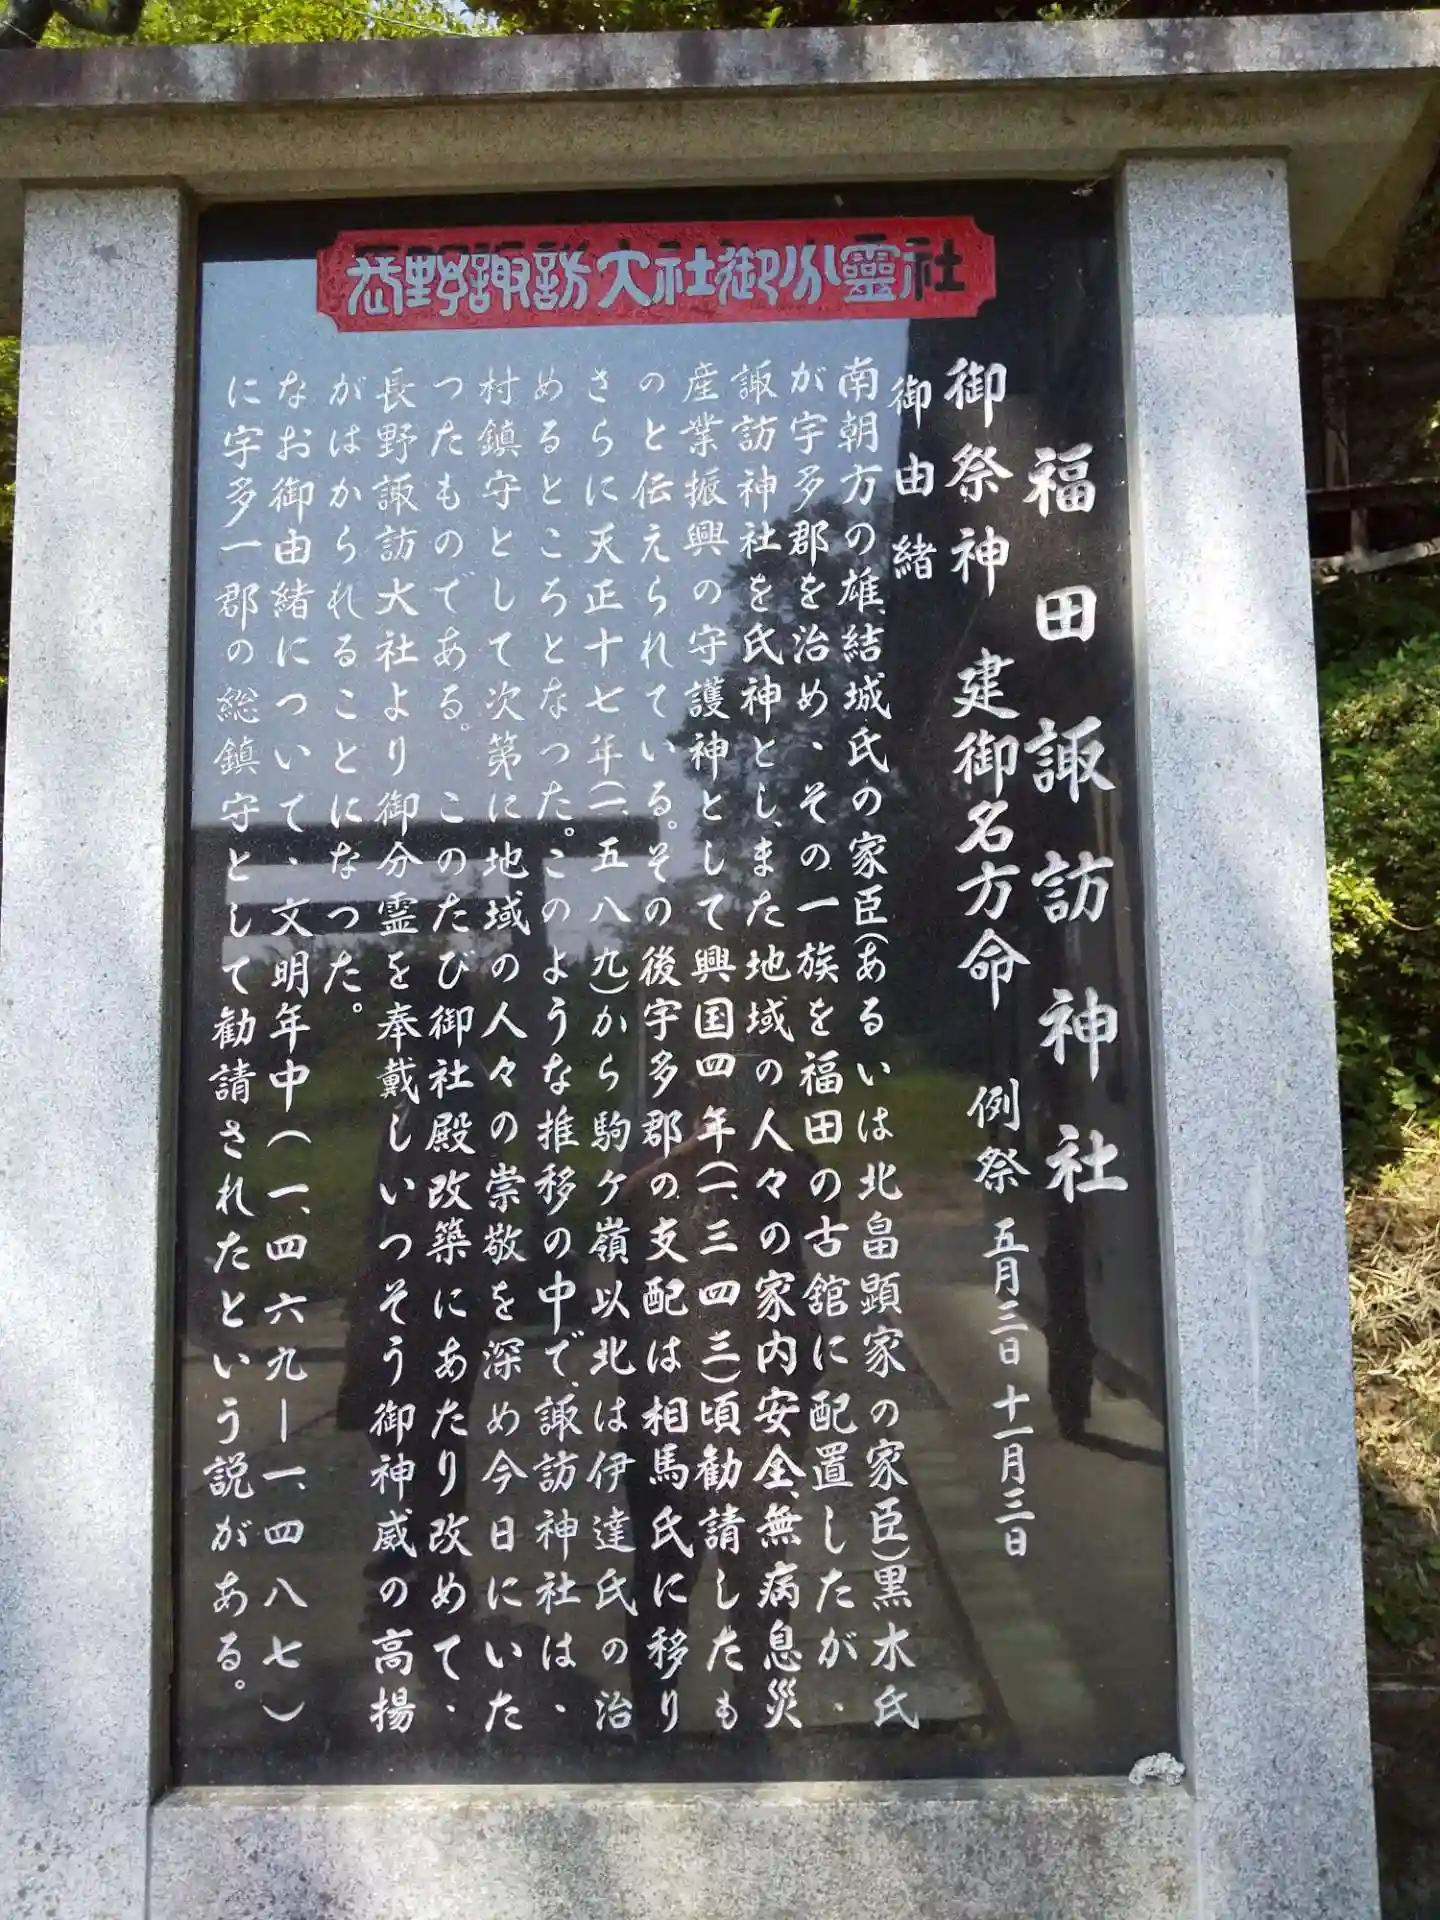 長野諏訪大社御分霊社
福田諏訪神社
御祭神 建御名方命 例祭 五月三日 十一月三日
御由緒
南朝方の雄、結城氏の家臣(あるいは北畠顕家の家臣)黒木氏
が宇多郡を治め、その一族を福田の古舘に配置したが、
諏訪神社を氏神とし、また地域の人々の家内安全、無病息災
産業振興の守護神として興国四年(一、三四三)頃勧請したも
のと伝えられている。その後宇多郡の支配は相馬氏に移り
さらに天正十七年(一、五八九)から駒ケ嶺以北は伊達氏の治
めるところとなった。このような推移の中で、諏訪神社は、
村鎮守として次第に地域の人々の崇敬を深め今日にいた
ったものである。このたび御社殿改築にあたり改めて、
長野諏訪大社より御分霊を奉戴しいっそう御神威の高揚
がはかられることになった。
なお御由緒について、文明年中(一、四六九ー一、四八七)
に宇多一郡の総鎮守として勧請されたという説がある。